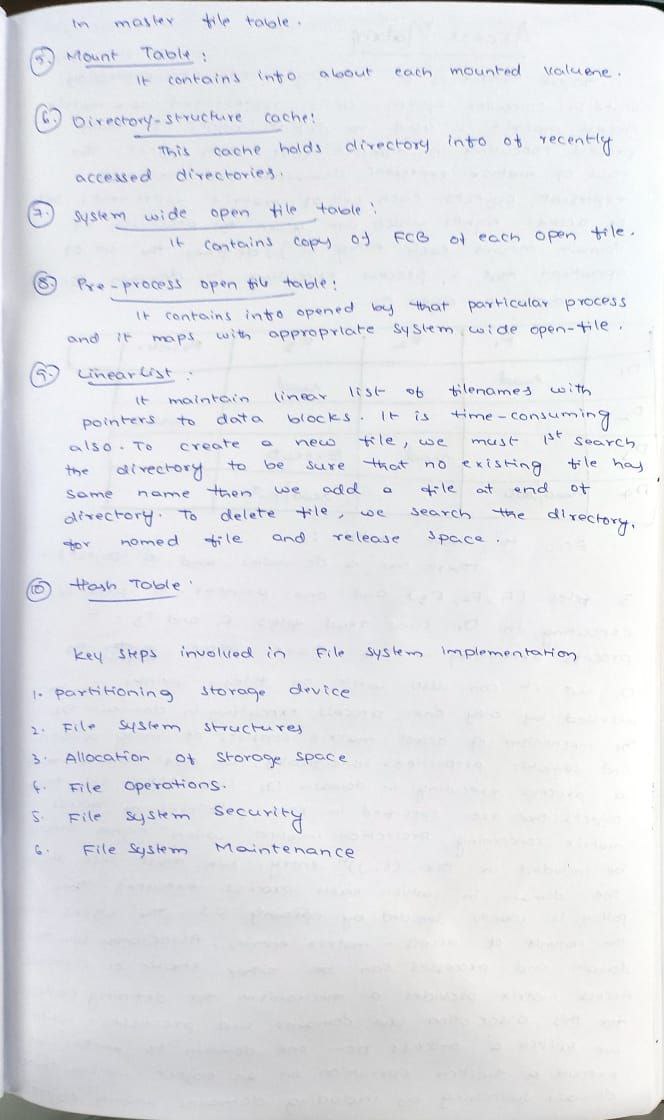 in master file table.
5. Mount Table :
It contains info about each mounted valuene.
6. Directory-structure cache:
This cache holds directory info of recently
accessed directories.
7. System wide open file table :
It contains copy of FCB of each open file.
8. Pre-process open file table:
It contains info opened by that particular process
and it maps with appropriate system wide open-file.
9. Linear List :
It maintain linear list of filenames with
pointers to data blocks. It is time-consuming
also. To create a new file, we must 1st search
the directory to be sure that no existing file has
same name then we add a file at end of
directory. To delete file, we search the directory,
for nomed file and release space.
10 Hash Table :
Key steps involved in File system implementation
1. partitioning storage device
2. File system structures
3. Allocation of storage space
4. File operations.
5. File system security
6. File system Maintenance